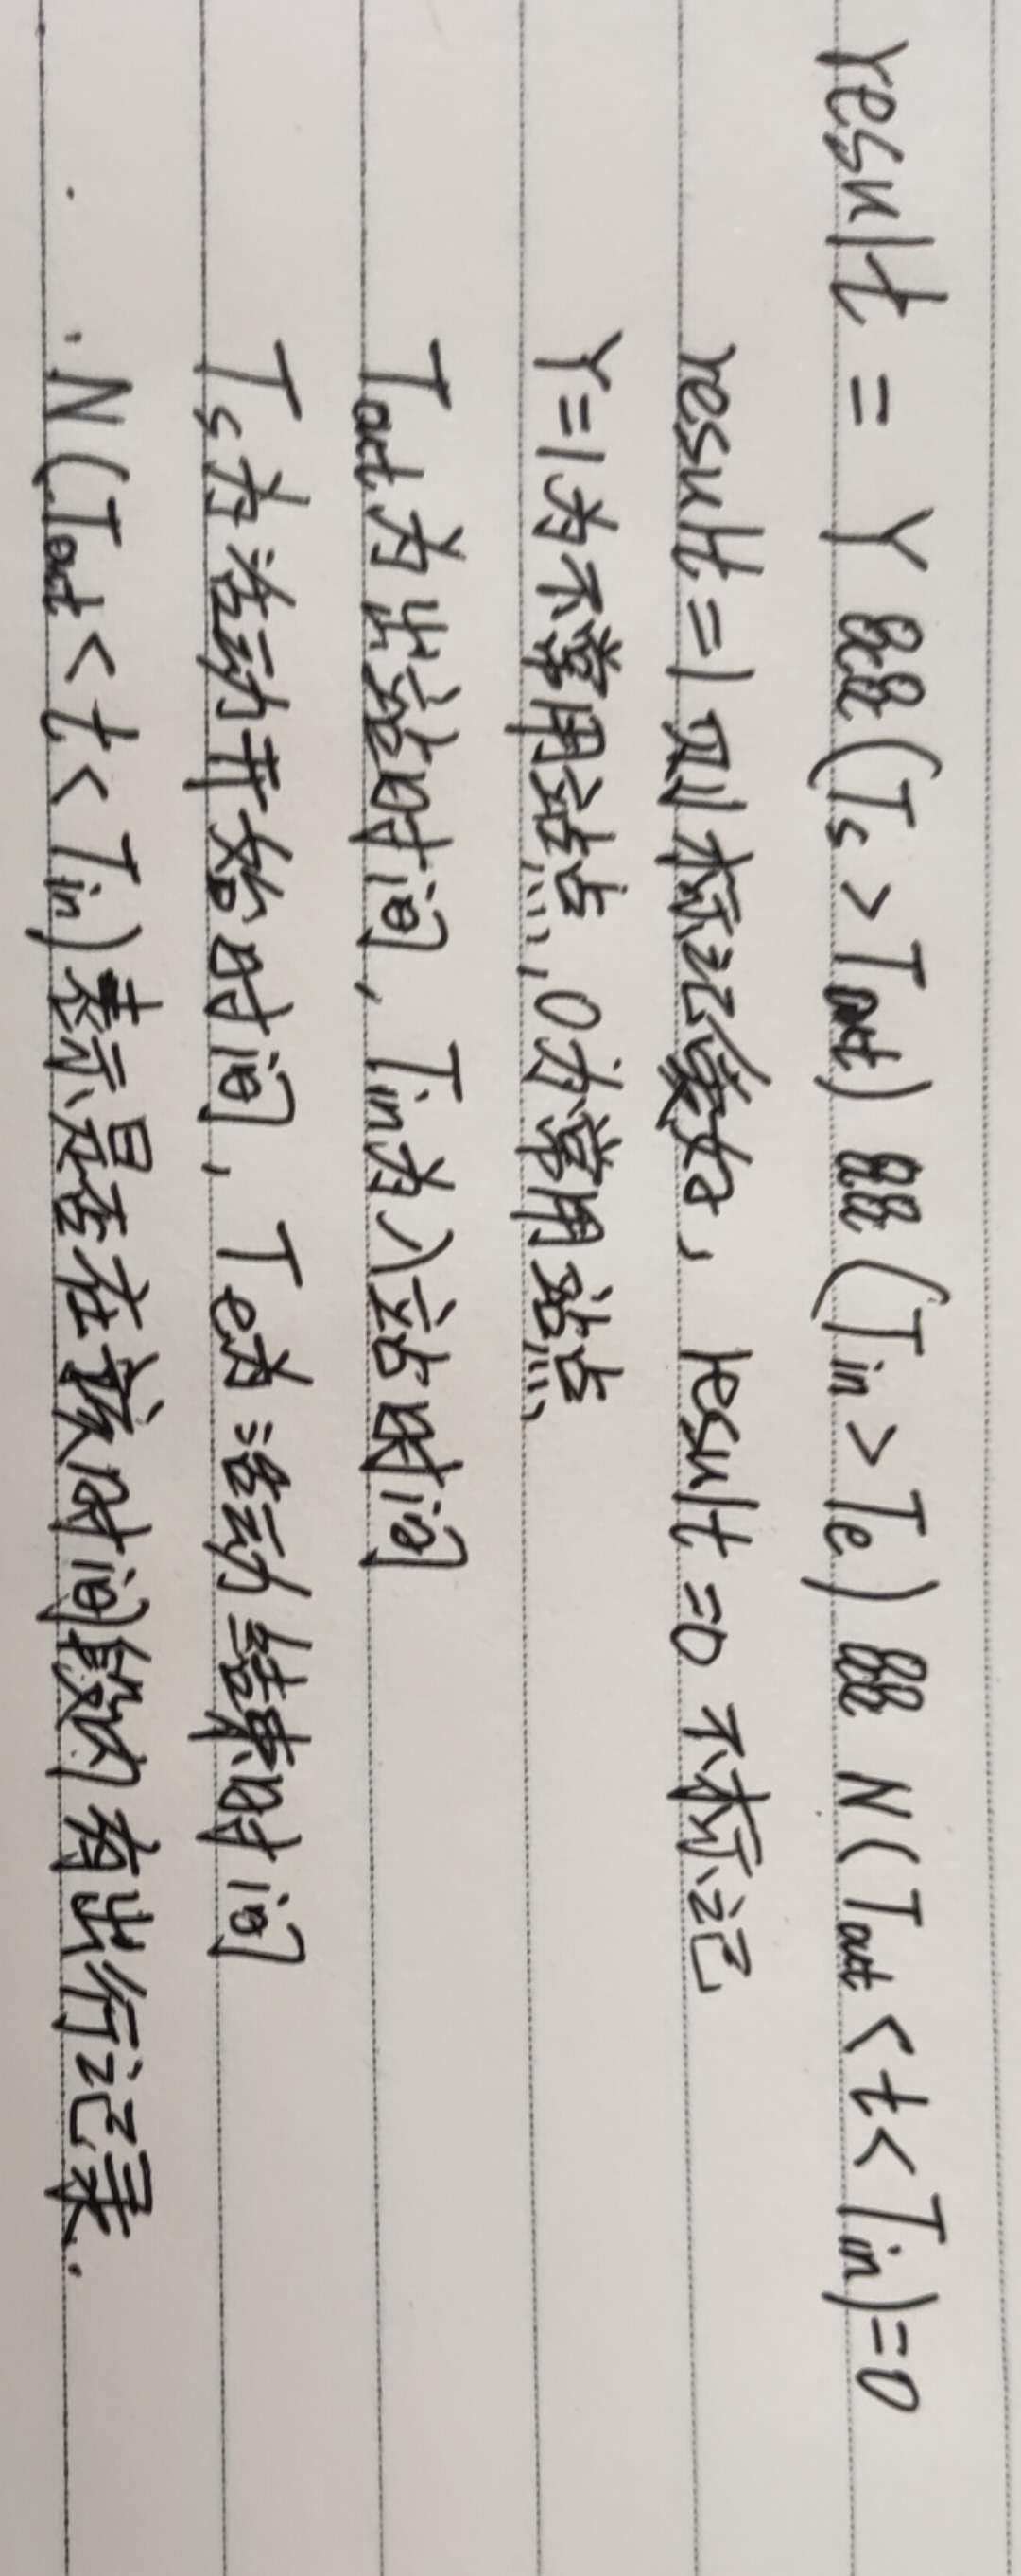 result = Y && (Ts > Tout) && (Tin > Te) && N(Tout < t < Tin)=0
result=1则标记爱好, result=0 不标记
Y=1为不常用站点,0为常用站点
Tout为出站时间, Tin为入站时间
Ts为活动开始时间, Te为活动结束时间
N(Tout < t < Tin)表示是否在该时间段内有出行记录.